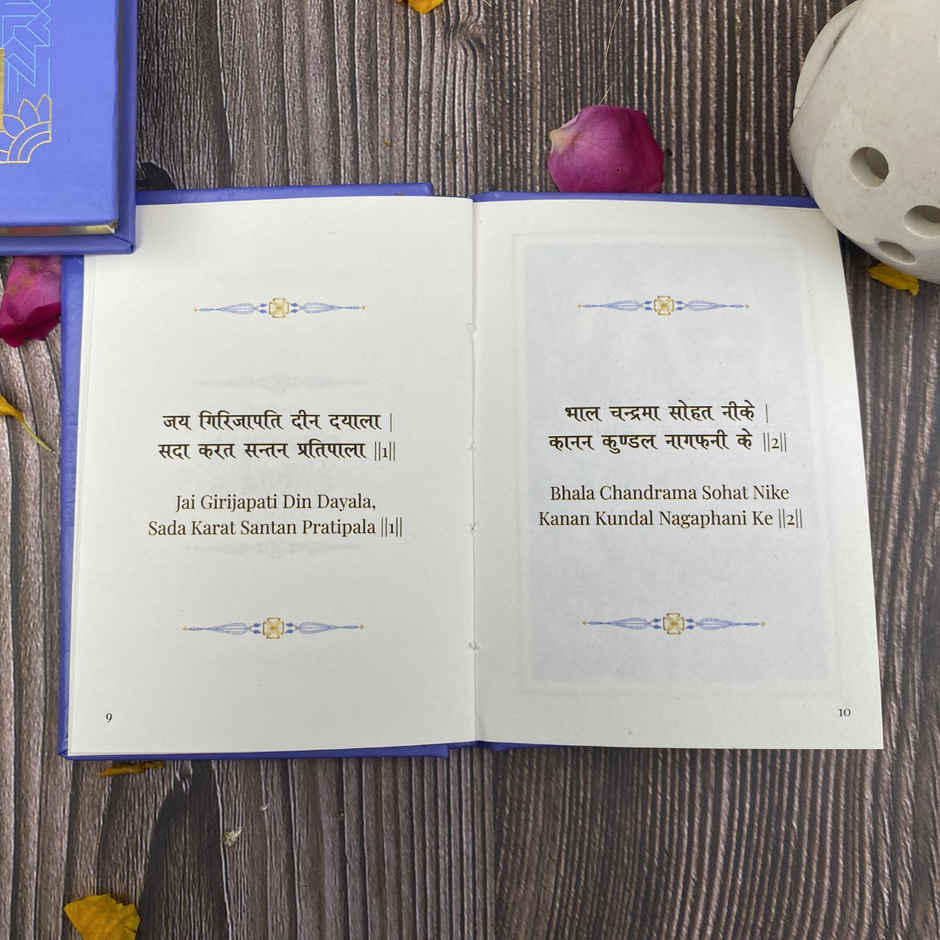 जय गिरिजापति दीन दयाला |
सदा करत सन्तन प्रतिपाला ||1||
Jai Girijapati Din Dayala,
Sada Karat Santan Pratipala ||1||
9
भाल चन्द्रमा सोहत नीके |
कानन कुण्डल नागफनी के ||2||
Bhala Chandrama Sohat Nike
Kanan Kundal Nagaphani Ke ||2||
10